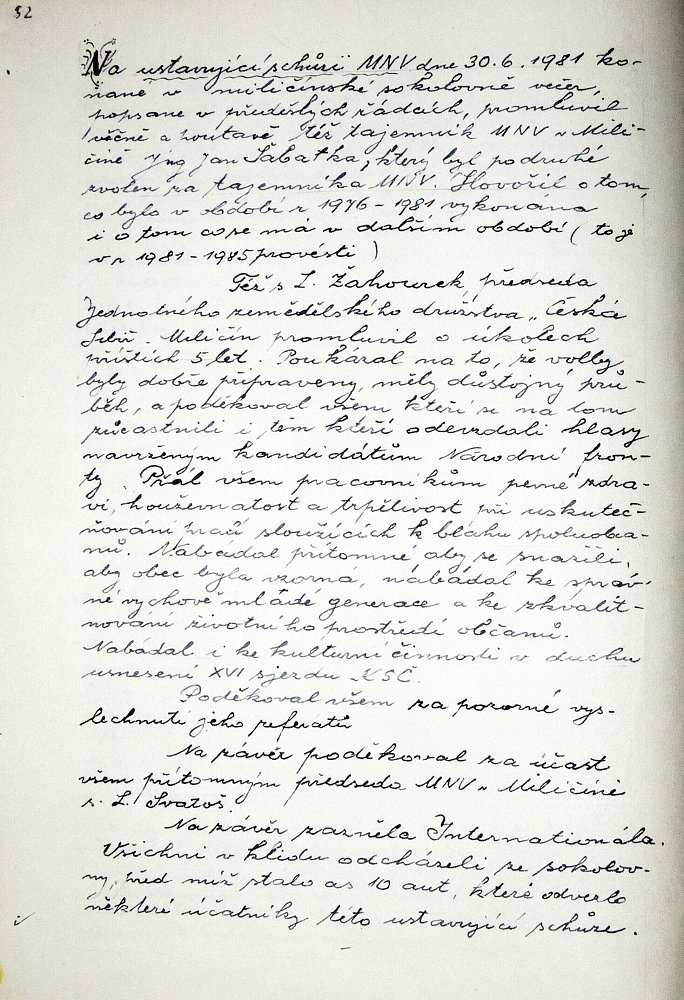 52
Na ustavující schůzi MNV dne 30.6.1981 ko-
nané v miličínské sokolovně večer,
popsané v předešlých řádcích, promluvil
věčně a poutavě též tajemník MNV v Mili-
číně Jng Jan Šabatka, který byl podruhé
zvolen za tajemníka MNV. Hovořil o tom,
co bylo v období r 1976-1981 vykonáno
i o tom co se má v dalším období (to je
v r 1981-1985 provésti)
Též s L. Žahourek, předseda
Jednotného zemědělského družstva „Česká
Sibiř. Miličín promluvil o úkolech
příštích 5 let. Poukázal na to, že volby,
byly dobře připraveny, měly důstojný prů-
běh, a poděkoval všem kteří se na tom
zúčastnili i těm kteří odevzdali hlasy
navrženým kandidátům Národní fron-
ty. Přál všem pracovníkům pevné zdra-
ví, houževnatost a trpělivost při uskuteč-
ňování prací sloužících k blahu spoluobča-
nů. Nabádal přítomné aby se snažili,
aby obec byla vzorná, nabádal ke správ-
né výchově mládé generace a ke zkvalit-
nování životního prostředí občanů.
Nabádal i ke kulturní činnosti v duchu
usnesení XVI sjezdu KSČ.
Poděkoval všem za pozorné vys-
lechnutí jeho referatů
Na závěr poděkoval za účast
všem přítomným předseda MNV v Miličíně
s. L. Svatoš.
Na závěr zazněla Internationála.
Všichni v klidu odcházeli ze sokolov-
ny, před níž stalo as 10 aut, které odvezlo
některé účatníky této ustavující schůze.